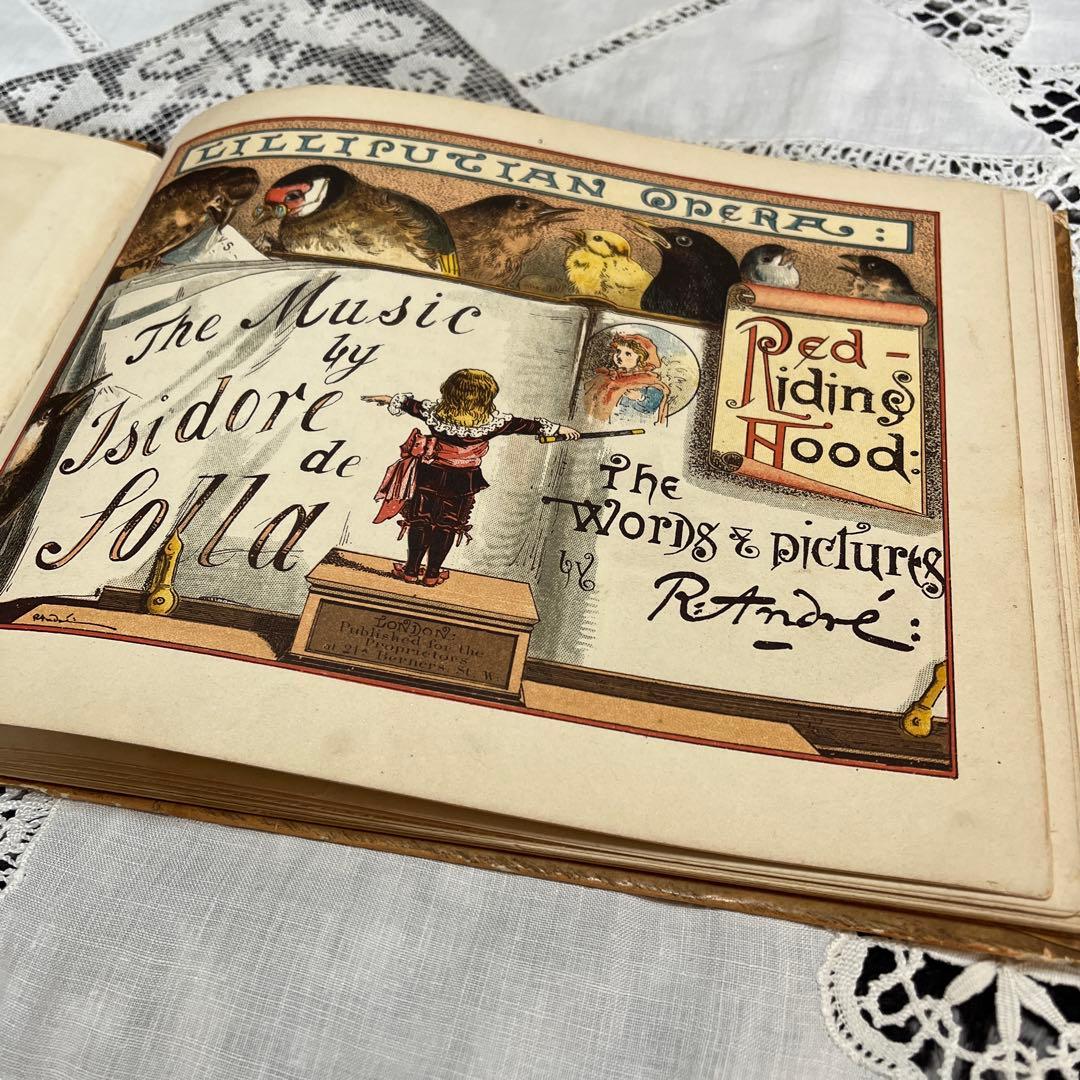 LILLIPUTIAN OPERA:
The Music
by
Isidore
de
Solla
Red-
Riding
Hood:
The
Words & pictures
by
R. André:
LONDON:
Published for the
Proprietors
at 21a Berners St. W.
R. André